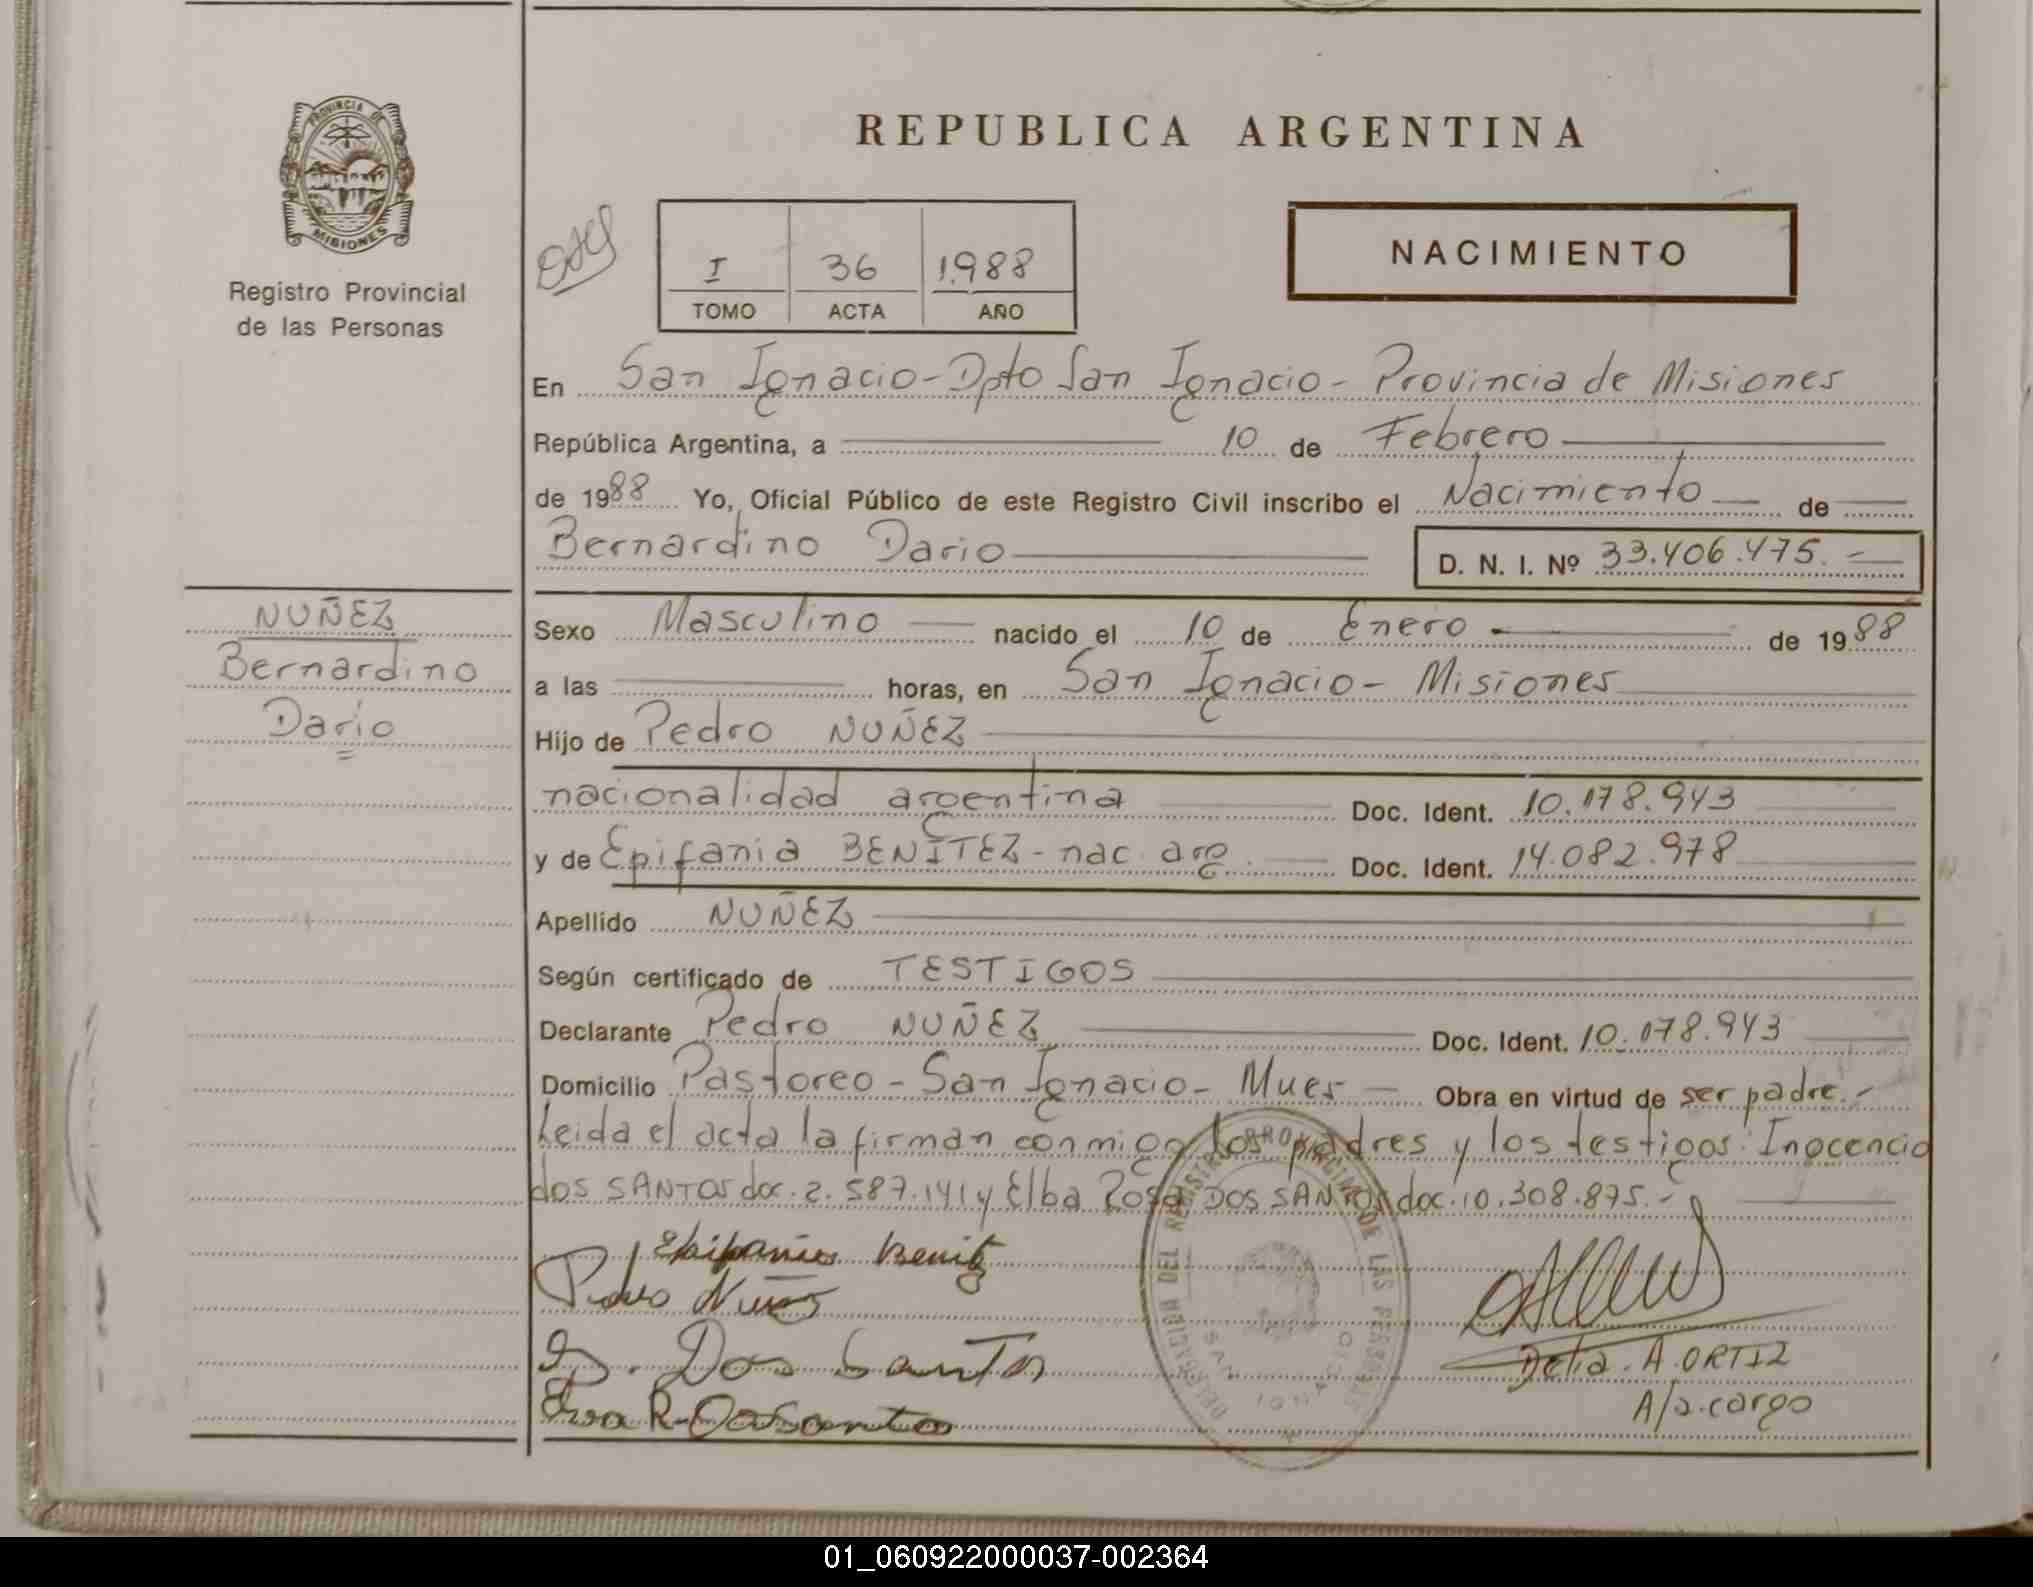 PROVINCIA DE
MISIONES
Registro Provincial
de las Personas
REPUBLICA ARGENTINA
I 36 1988
TOMO ACTA AÑO
NACIMIENTO
En San Ignacio - Dpto San Ignacio - Provincia de Misiones
República Argentina, a 10 de Febrero
de 1988 Yo, Oficial Público de este Registro Civil inscribo el Nacimiento de
Bernardino Dario D. N. I. Nº 33.406.475.-
NUÑEZ
Bernardino
Dario
Sexo Masculino nacido el 10 de Enero de 1988
a las horas, en San Ignacio - Misiones
Hijo de Pedro NUÑEZ
nacionalidad argentina Doc. Ident. 10.178.943
y de Epifania BENITEZ - nac. arg. Doc. Ident. 14.082.978
Apellido NUÑEZ
Según certificado de TESTIGOS
Declarante Pedro NUÑEZ Doc. Ident. 10.178.943
Domicilio Pastoreo - San Ignacio - Mnes Obra en virtud de ser padre.-
Leida el acta la firman conmigo los padres y los testigos: Inocencio
dos SANTOS doc. 2.587.141 y Elba Rosa DOS SANTOS doc. 10.308.875.-
Epifania Benitz
Pedro Nuñez
I. Dos Santos
DELEGACION DEL REGISTRO PROVINCIAL DE LAS PERSONAS
SAN IGNACIO
Delia. A. ORTIZ
A/a. cargo
01_060922000037-002364